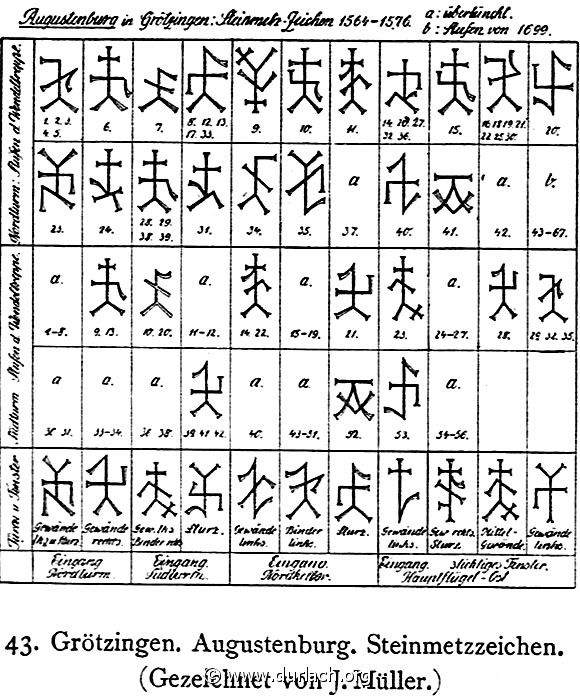 Augustenburg in Grötzingen: Steinmetz-Zeichen 1564-1576. a: übertüncht.
b: Stufen von 1699.
Nordturm: Stufen d Wendeltreppe.
1. 2. 3. 4. 5.
6.
7.
8. 12. 13. 17. 33.
9.
10.
11.
14. 26. 27. 32. 36.
15.
16. 18. 19. 21. 22. 25. 30.
20.
23.
24.
28. 29. 38. 39.
31.
34.
35.
a
37.
40.
41.
a.
42.
b.
43-67.
Südturm Stufen d Wendeltreppe.
a.
1-8.
9. 13.
10. 20.
a.
11-12.
14. 22.
a.
15-19.
21.
23.
a.
24-27.
28.
29. 32. 35.
a
30. 31.
a.
33-34.
a.
36. 38.
39. 41. 42.
a.
40.
a.
43-51.
52.
53.
a.
54-56.
Türen u Fenster
Gewände
Gewände rechts.
Gew. lks
Sturz.
Gewände links.
Binder links.
Sturz.
Gewände links.
Gew rechts. Sturz.
Mittel-Gewände.
Gewände links.
Eingang Nordturm.
Eingang Südturm.
Eingang Nordkeller.
Eingang. Fenster. Hauptflügel-Ost
43. Grötzingen. Augustenburg. Steinmetzzeichen.
(Gezeichnet von J. Müller.)
© www.durlach.org